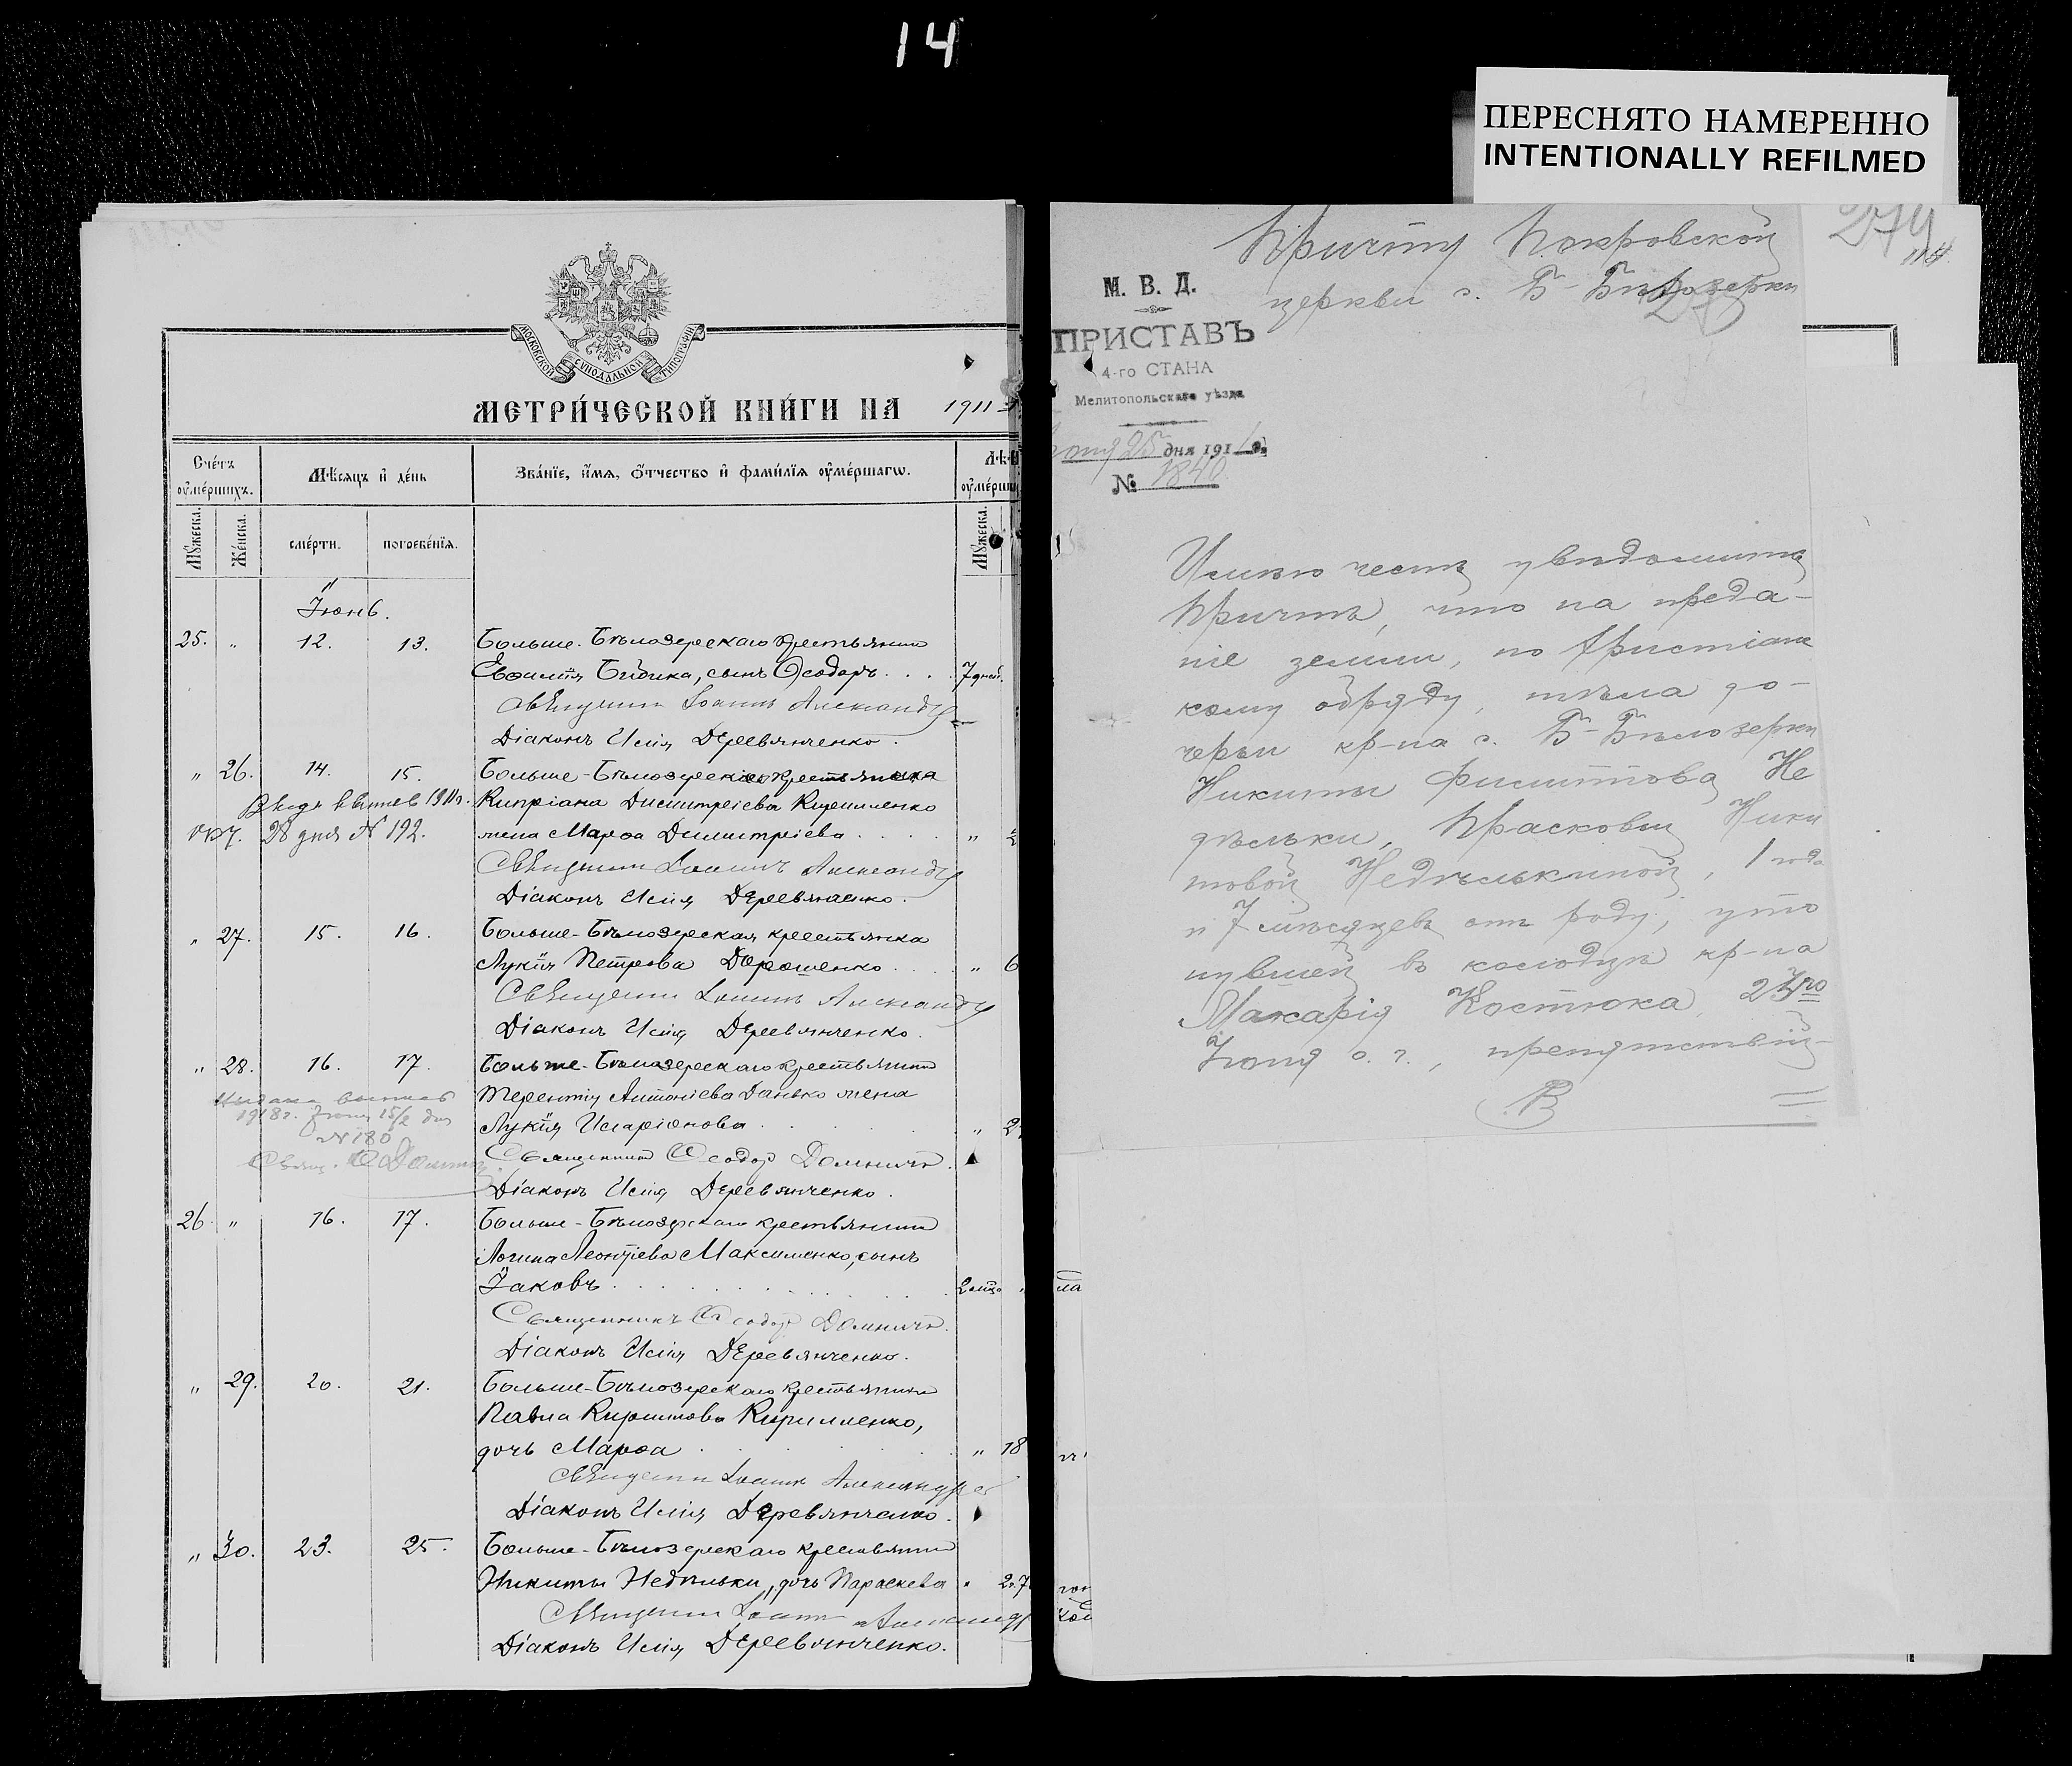 14
ПЕРЕСНЯТО НАМЕРЕННО
INTENTIONALLY REFILMED
МОСКОВСКОЙ СѴНОДАЛЬНОЙ ТИПОГРАФІИ
МЕТРИ́ЧЕСКОЙ КНИ́ГИ НА 1911
Счéтъ ᲂу҆ме́ршихъ.
Мѣ́сяцъ и҆ де́нь
Зва́нїе, и҆́мя, ѻ҆́тчество и҆ фами́лїя ᲂу҆ме́ршагѡ.
Мꙋ́жеска.
Же́нска.
сме́рти.
погребе́нїя.
Мꙋ́жеска.
Іюнь.
25. " 12. 13. Больше-Бѣлозерскаго крестьянина
Евѳимія Бибика, сынъ Ѳеодоръ . . . . 7 дней.
Священникъ Іоаннъ Александр
Діаконъ Илія Деревянченко.
" 26. 14. 15. Больше-Бѣлозерскаго крестьянина
Кипріана Димитріева Кириленко
жена Марѳа Димитріева . . . . "
28 дня № 192.
Священникъ Іоаннъ Александр
Діаконъ Илія Деревянченко.
" 27. 15. 16. Больше-Бѣлозерская крестьянка
Лукія Петрова Дорошенко . . . . " 6
Священникъ Іоаннъ Александр
Діаконъ Илія Деревянченко.
" 28. 16. 17. Больше-Бѣлозерскаго крестьянина
Терентія Антоніева Данько жена
Лукія Иларіонова . . . . " 2
Выдана выпись
1918 г. Іюня 15/2 дня
№ 180
Свящ. Ѳ. Домнич
Священникъ Ѳеодор Домничъ.
Діаконъ Илія Деревянченко.
26. " 16. 17. Больше-Бѣлозерскаго крестьянина
Логина Леонтіева Максименко, сынъ
Іаковъ . . . . 2 мѣс.
Священникъ Ѳеодор Домничъ.
Діаконъ Илія Деревянченко.
" 29. 20. 21. Больше-Бѣлозерскаго крестьянина
Павла Кирилова Кириленко,
дочь Марѳа . . . . " 18
Священникъ Іоаннъ Александров
Діаконъ Илія Деревянченко.
" 30. 23. 25. Больше-Бѣлозерскаго крестьянина
Никиты Недѣльки, дочь Параскева " 2. 7
Священникъ Іоаннъ Александр
Діаконъ Илія Деревянченко.
Причту Покровской
церкви с. Б-Бѣлозерки
274
114
М. В. Д.
ПРИСТАВЪ
4-го СТАНА
Мелитопольскаго уѣзда
Іюня 25 дня 1911 г.
№ 1840
Имѣю честь увѣдомить
Причтъ, что на преда-
ніе землѣ, по христіанс
кому обряду, тѣла до-
чери кр-на с. Б-Бѣлозерки
Никиты Филиппова Не
дѣльки, Прасковьи Ники
товой Недѣлькиной, 1 года
и 7 мѣсяцевъ отъ роду, уто
нувшей въ колодцѣ кр-на
Макарія Костюка, 23го
Іюня с. г., препятствій